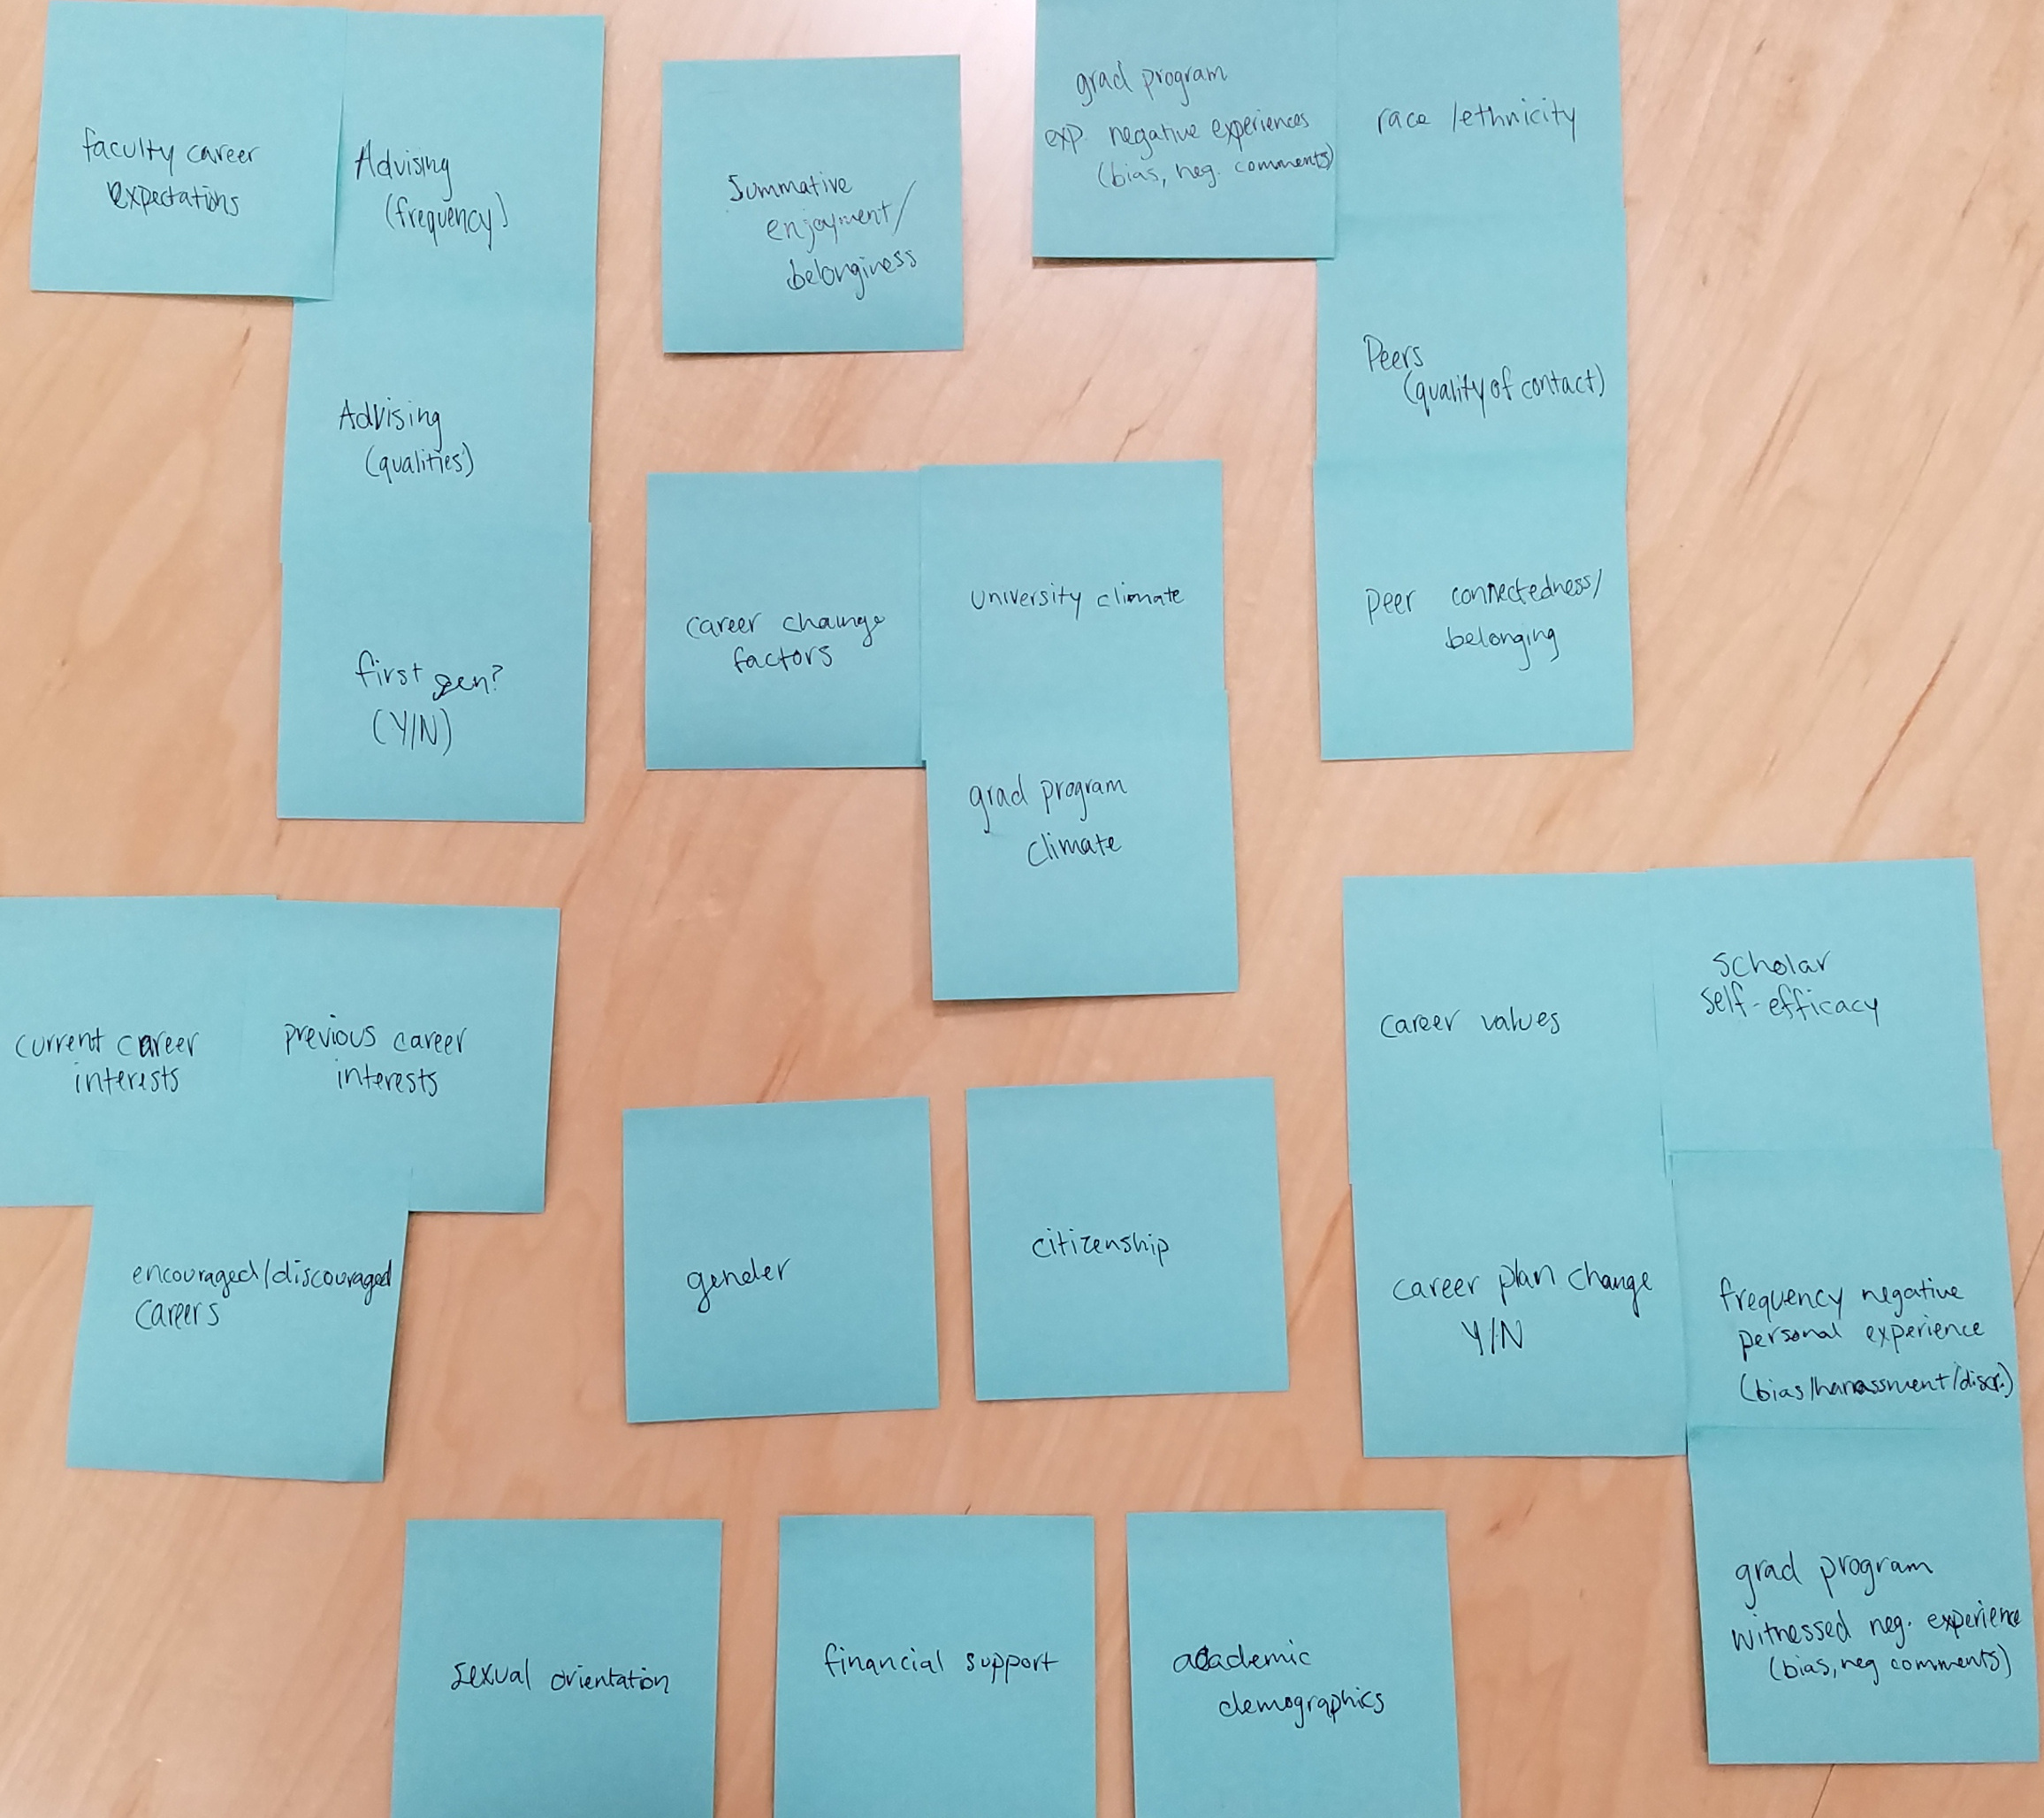 faculty career
expectations
Advising
(frequency)
Advising
(qualities)
first gen?
(Y/N)
Summative
enjoyment/
belonginess
grad program
exp. negative experiences
(bias, neg. comments)
race /ethnicity
Peers
(quality of contact)
peer connectedness/
belonging
career change
factors
university climate
grad program
climate
current career
interests
previous career
interests
encouraged/discouraged
careers
gender
citizenship
career values
scholar
self-efficacy
career plan change
Y/N
frequency negative
personal experience
(bias/harassment/discr.)
grad program
witnessed neg. experience
(bias, neg comments)
sexual orientation
financial support
academic
demographics